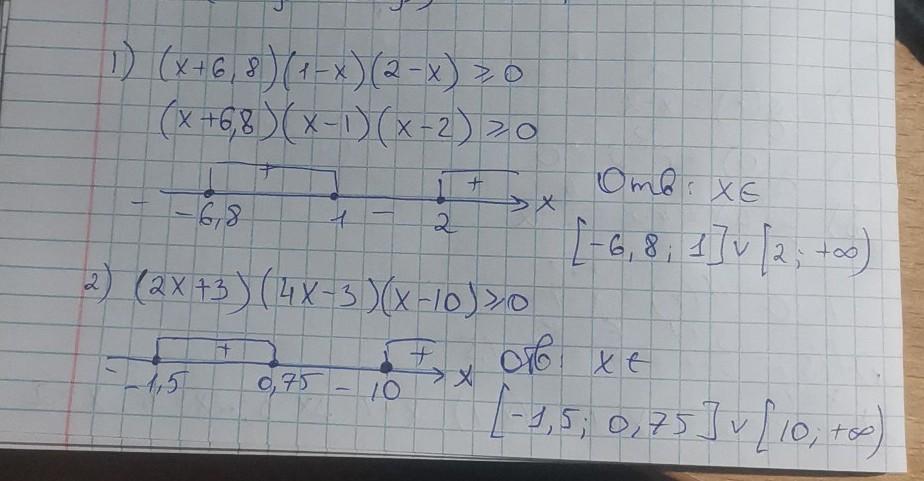 1) (x+6,8)(1-x)(2-x) ⩾0
(x+6,8)(x-1)(x-2) ⩾0
+ +
- -6,8 1 - 2 x Отв: x∈
[-6,8; 1]∨[2; +∞)
2) (2x+3)(4x-3)(x-10)⩾0
+ +
- -1,5 0,75 - 10 x отв: x∈
[-1,5; 0,75]∨[10; +∞)